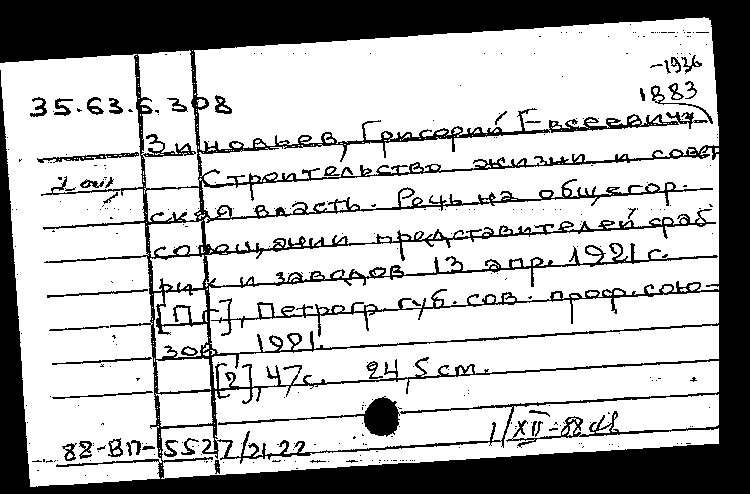 -1936
35.63.6.308 1883
Зиновьев, Григорий Евсеевич
Строительство жизни и совет
ская власть. Речь на общегор.
совещании представителей фаб
рик и заводов 13 апр. 1921 г.
[Пг.], Петрогр. губ. сов. проф. сою-
зов, 1921.
[2], 47 с. 24,5 см.
1/XII-88
88-ВП-5527/21,22